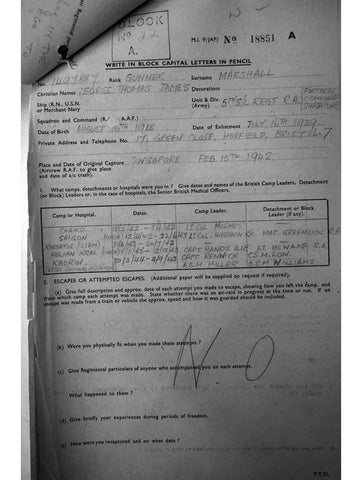 BLOCK
No 22
A.
M.I. 9/JAP/ No 18851 A
WRITE IN BLOCK CAPITAL LETTERS IN PENCIL
No. 1427887 Rank GUNNER Surname MARSHALL
Christian Names GEORGE THOMAS JAMES Decorations
Ship (R.N., U.S.N. or Merchant Navy) Unit & Div. (Army) 5TH S/L REGT R.A. (FORTRESS COMMAND SINGAPORE)
Squadron and Command (R.A.A.F.)
Date of Birth AUGUST 1918 Date of Enlistment JULY 16TH 1939
Private Address and Telephone No. 17, GREEN PLACE, HORFIELD, BRISTOL-7
Place and Date of Original Capture SINGAPORE FEB 15TH 1942.
(Aircrew R.A.F. to give place and date of a/c crash).
1. What camps, detachments or hospitals were you in? Give dates and names of the British Camp Leaders. Detachment (or Block) Leaders or, in the case of hospitals, the Senior British Medical Officers.
Camp or Hospital. Dates. Camp Leader. Detachment or Block Leader (if any).
CHANGI LT COL HOLMES
SAIGON LT COL HUGONIN RA
CAPT HANDS
KACHRIN 20/3/44 CAPT. RENNICK CSM. LON.
R.S.M. MILLER B.S.M. WILLIAMS
2. ESCAPES OR ATTEMPTED ESCAPES. (Additional paper will be supplied up request if required).
(a) Give full description and approx. date of each attempt you made to escape, showing how you left the camp, and from which camp each attempt was made. State whether there was an air-raid in progress at the time or not. If an escape was made from a train or vehicle the approx. speed and how it was guarded should be included.
N O
(b) Were you physically fit when you made these attempts?
(c) Give Regimental particulars of anyone who accompanied you on each attempt.
What happened to them?
(d) Give briefly your experiences during periods of freedom.
(e) How were you recaptured and on what date?
P.T.O.